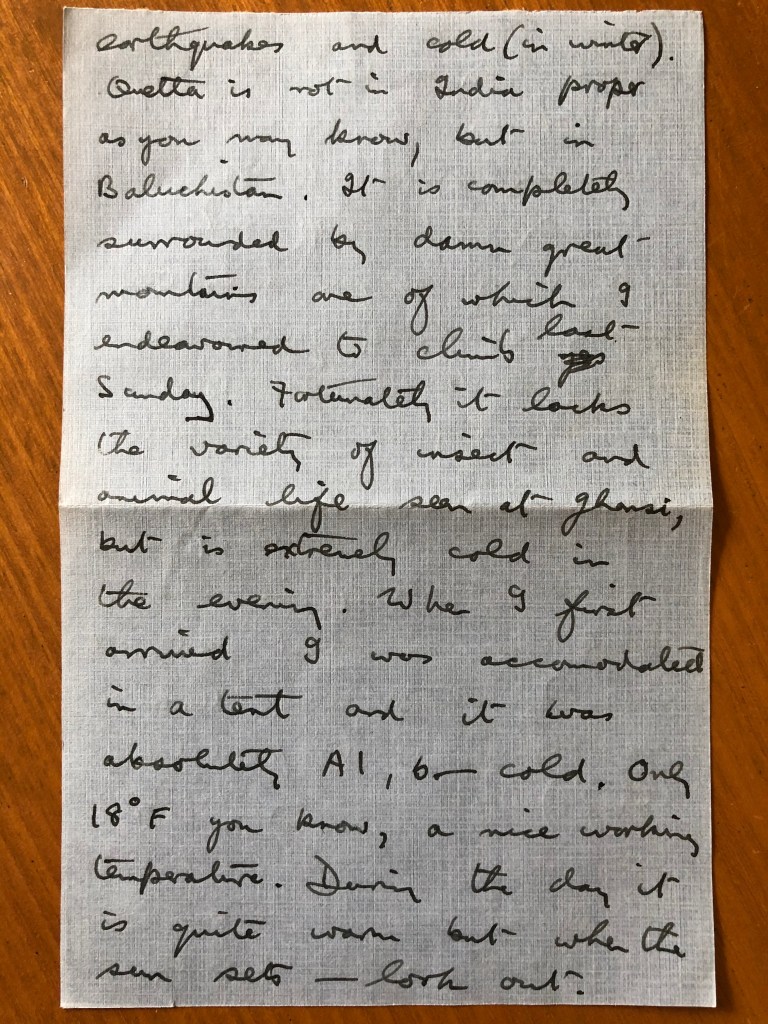 earthquakes and cold (in winter).
Quetta is not in India proper
as you may know, but in
Baluchistan. It is completely
surrounded by damn great
mountains one of which I
endeavoured to climb last
Sunday. Fortunately it lacks
the variety of insect and
animal life seen at Jhansi,
but is extremely cold in
the evening. When I first
arrived I was accomodated
in a tent and it was
absolutely A1, b— cold. Only
18°F you know, a nice working
temperature. During the day it
is quite warm but when the
sun sets — look out.